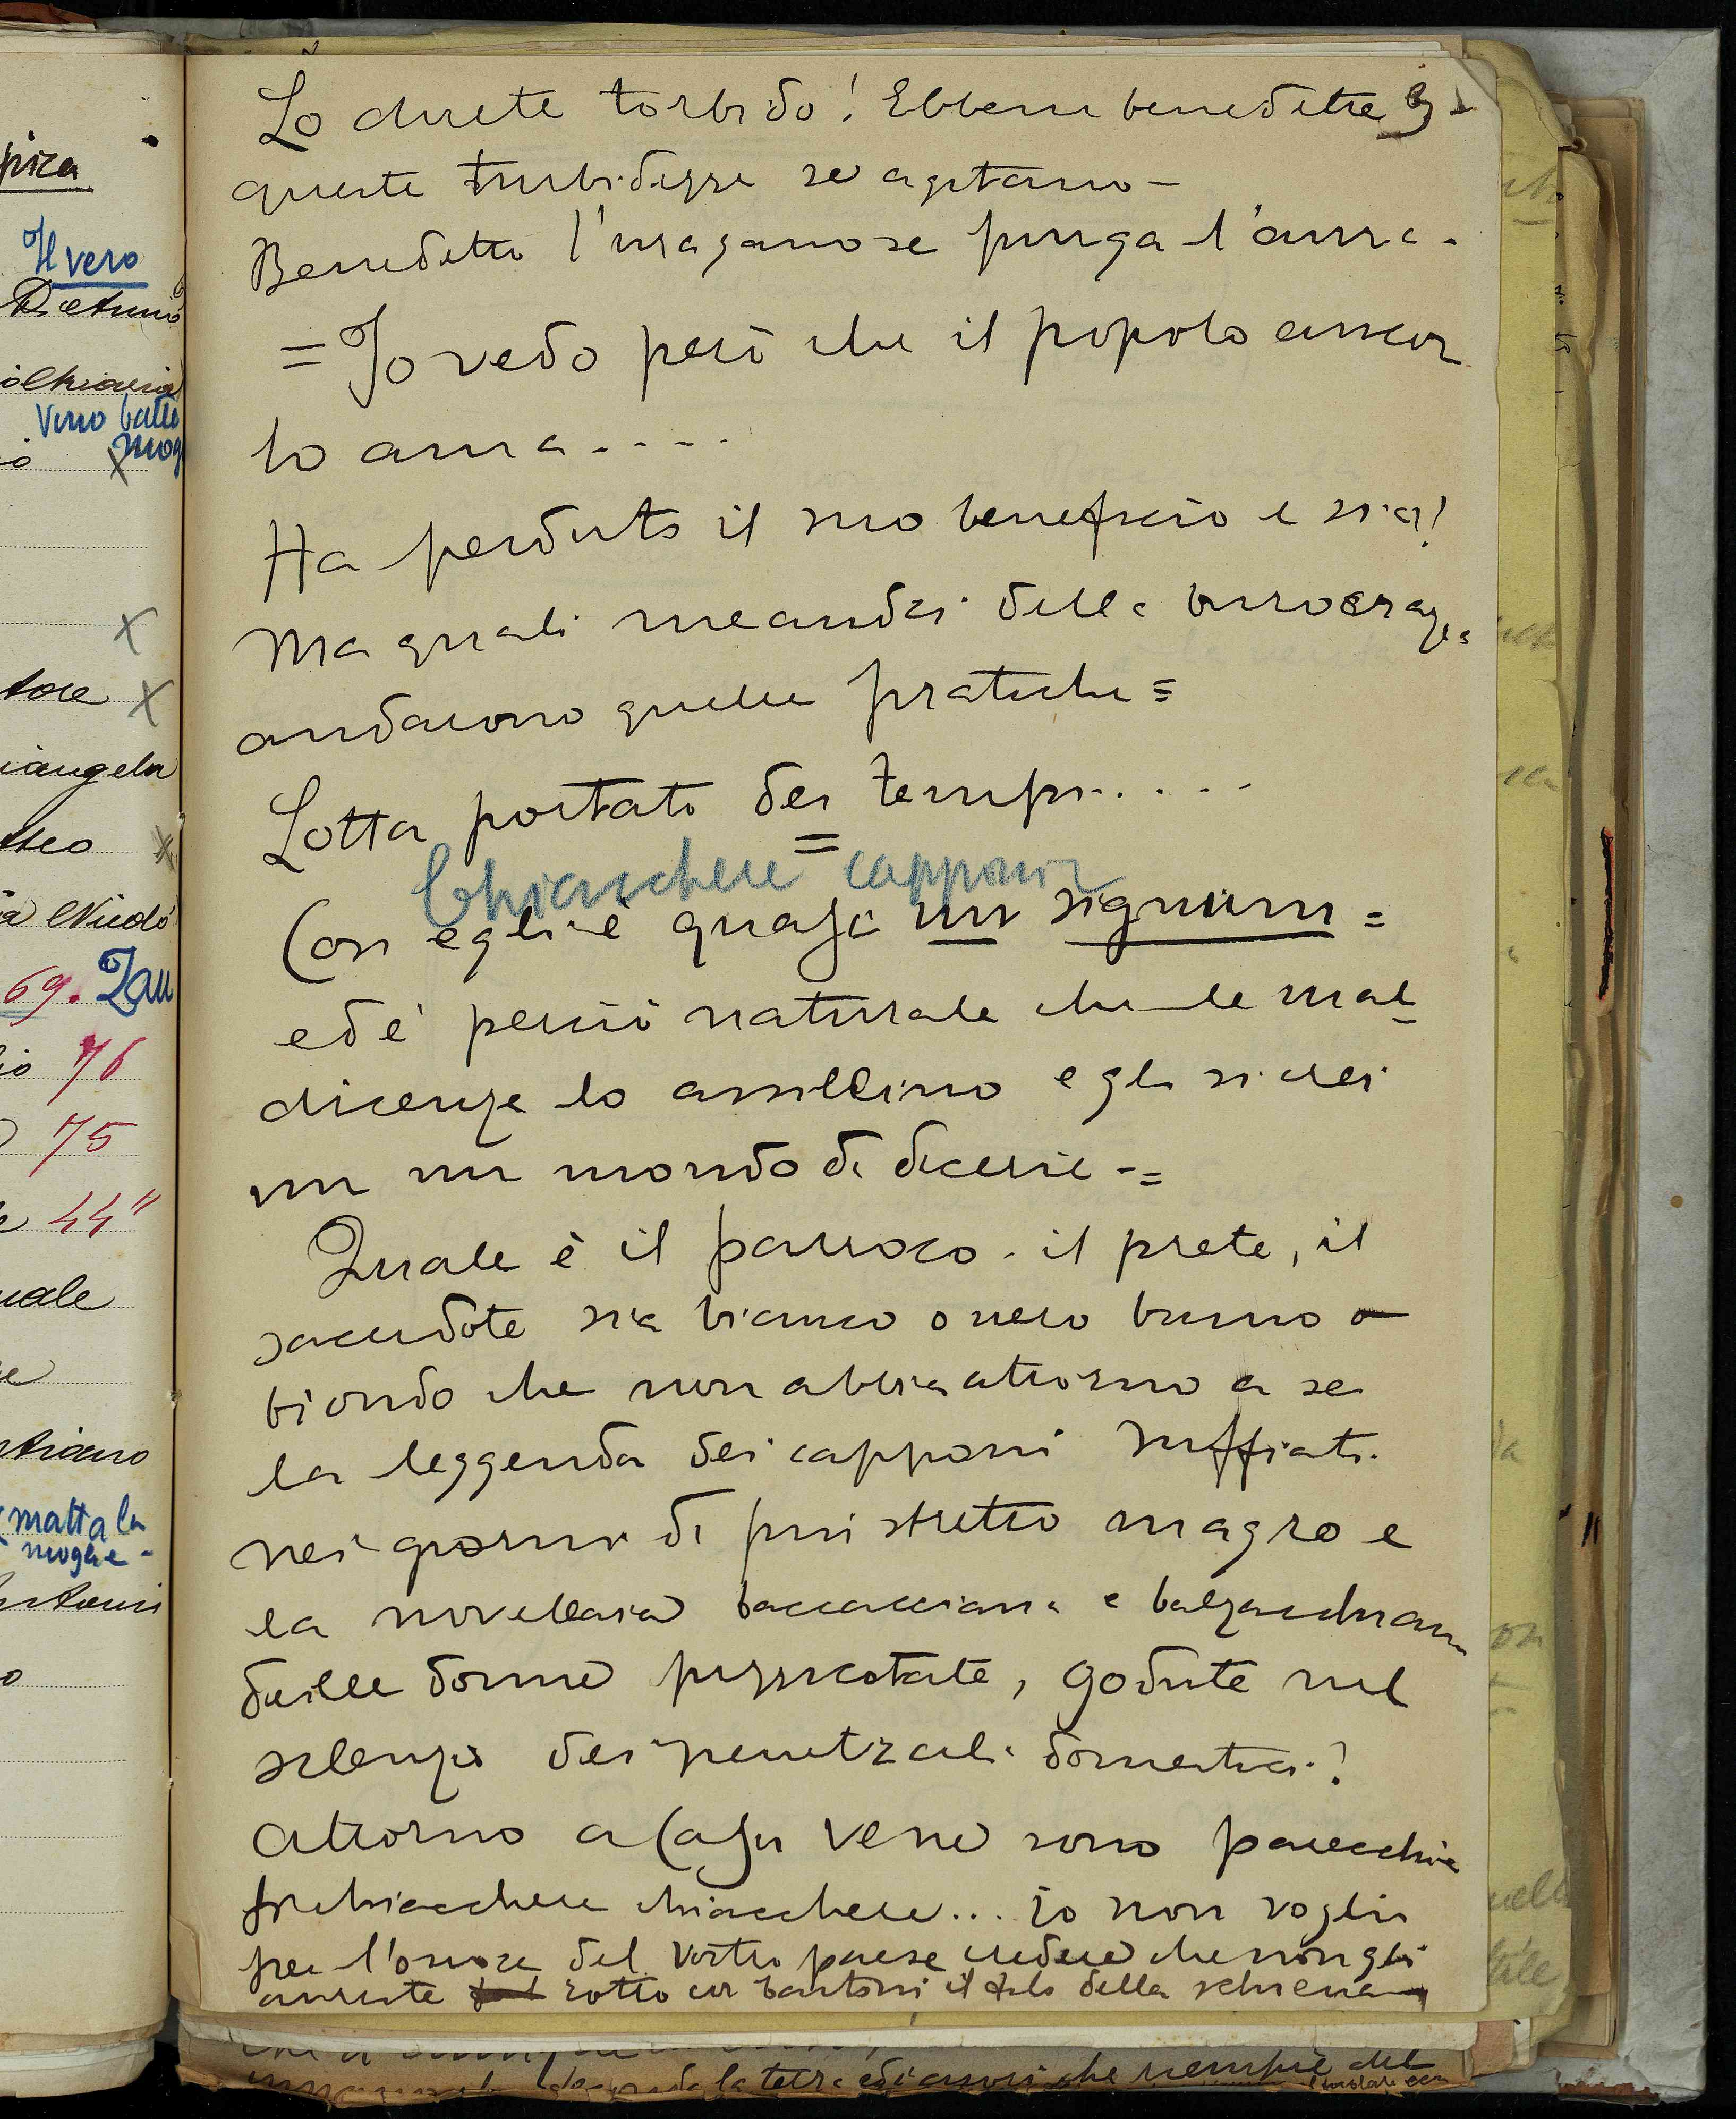 pica
Il vero
Vino
mog
tore
iangela
tteo
69. Zau
io 76
75
44"
uale
matta la
moglie -
Lo direte torbido! Ebbene benedette
queste turbidezze se agitano -
Benedetto l'uragano se purga l'aura -
= Io vedo però che il popolo ancor
lo ama ....
Ha perduto il suo beneficio e sia!
Ma quali meandri della burocrazia
andarono quelle pratiche =
Lotta portato dei tempi.....
=
Chiacchere capponi
Così egli è quasi un signum =
ed è perciò naturale che le mal
dicenze lo assillino e gli si crei
un mondo di dicerie - =
Quale è il parroco - il prete, il
sacerdote sia bianco o nero bruno o
biondo che non abbia attorno a se
la leggenda dei capponi
nei giorni di più stretto magro e
la novellaia boccacciana e balzacchiana
delle donne pizzicotate, godute nel
silenzio dei penetrali domestici?
Attorno a Casa Vene sono parecchie
chiacchere... io non voglio
per l'onore del vostro paese credere che non gli
avreste rotto coi bastoni il filo della schiena
la tetra che sempre del